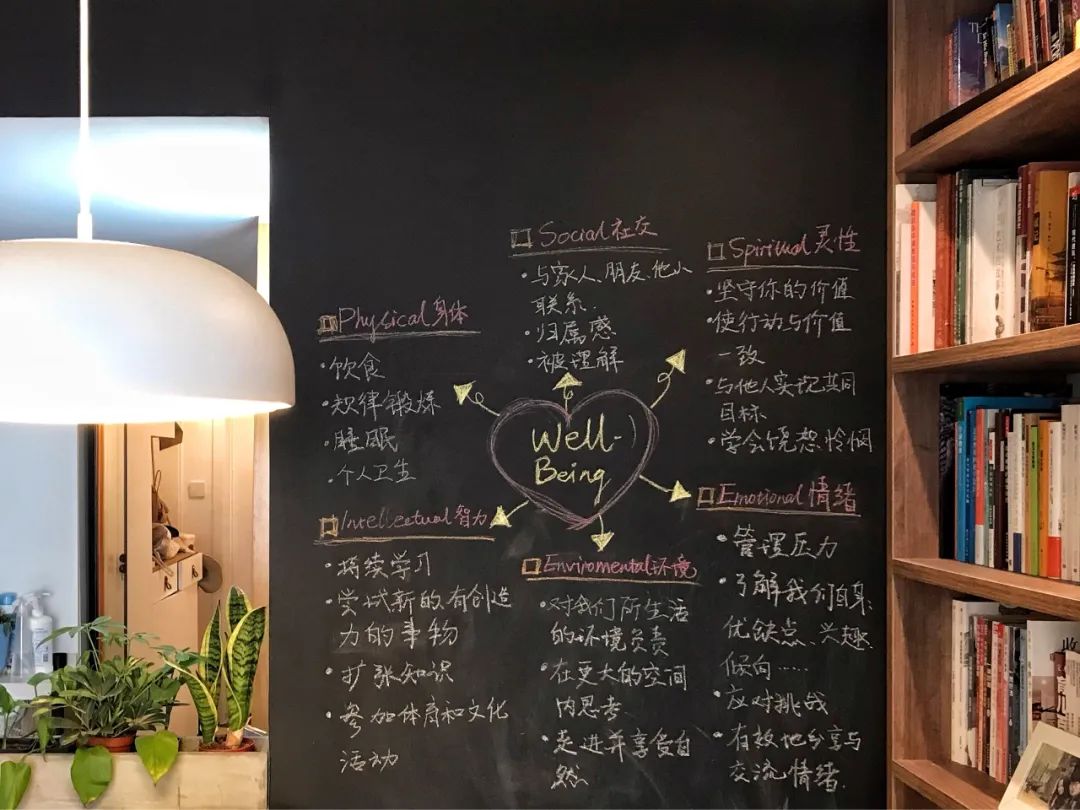 Well-
Being
□ Physical 身体
• 饮食
• 规律锻炼
• 睡眠
• 个人卫生
□ Social 社交
• 与家人、朋友、他人
联系.
• 归属感
• 被理解
□ Spiritual 灵性
• 坚守你的价值
• 使行动与价值
一致
• 与他人实现共同
目标
• 学会宽恕怜悯
□ Intellectual 智力
• 持续学习
• 尝试新的、有创造
力的事物
• 扩张知识
• 参加体育和文化
活动
□ Enviromental 环境
• 对我们所生活
的环境负责
• 在更大的空间
内思考
• 走进并享受自
然
□ Emotional 情绪
• 管理压力
• 了解我们自身、
优缺点、兴趣、
倾向……
• 应对挑战
• 有效地分享与
交流情绪.